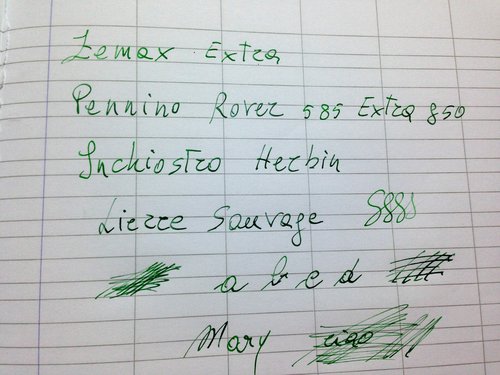 Zemax Extra
Pennino Rover 585 Extra 850
Inchiostro Herbin
Lierre Sauvage 8888
a b c d
Mary ciao